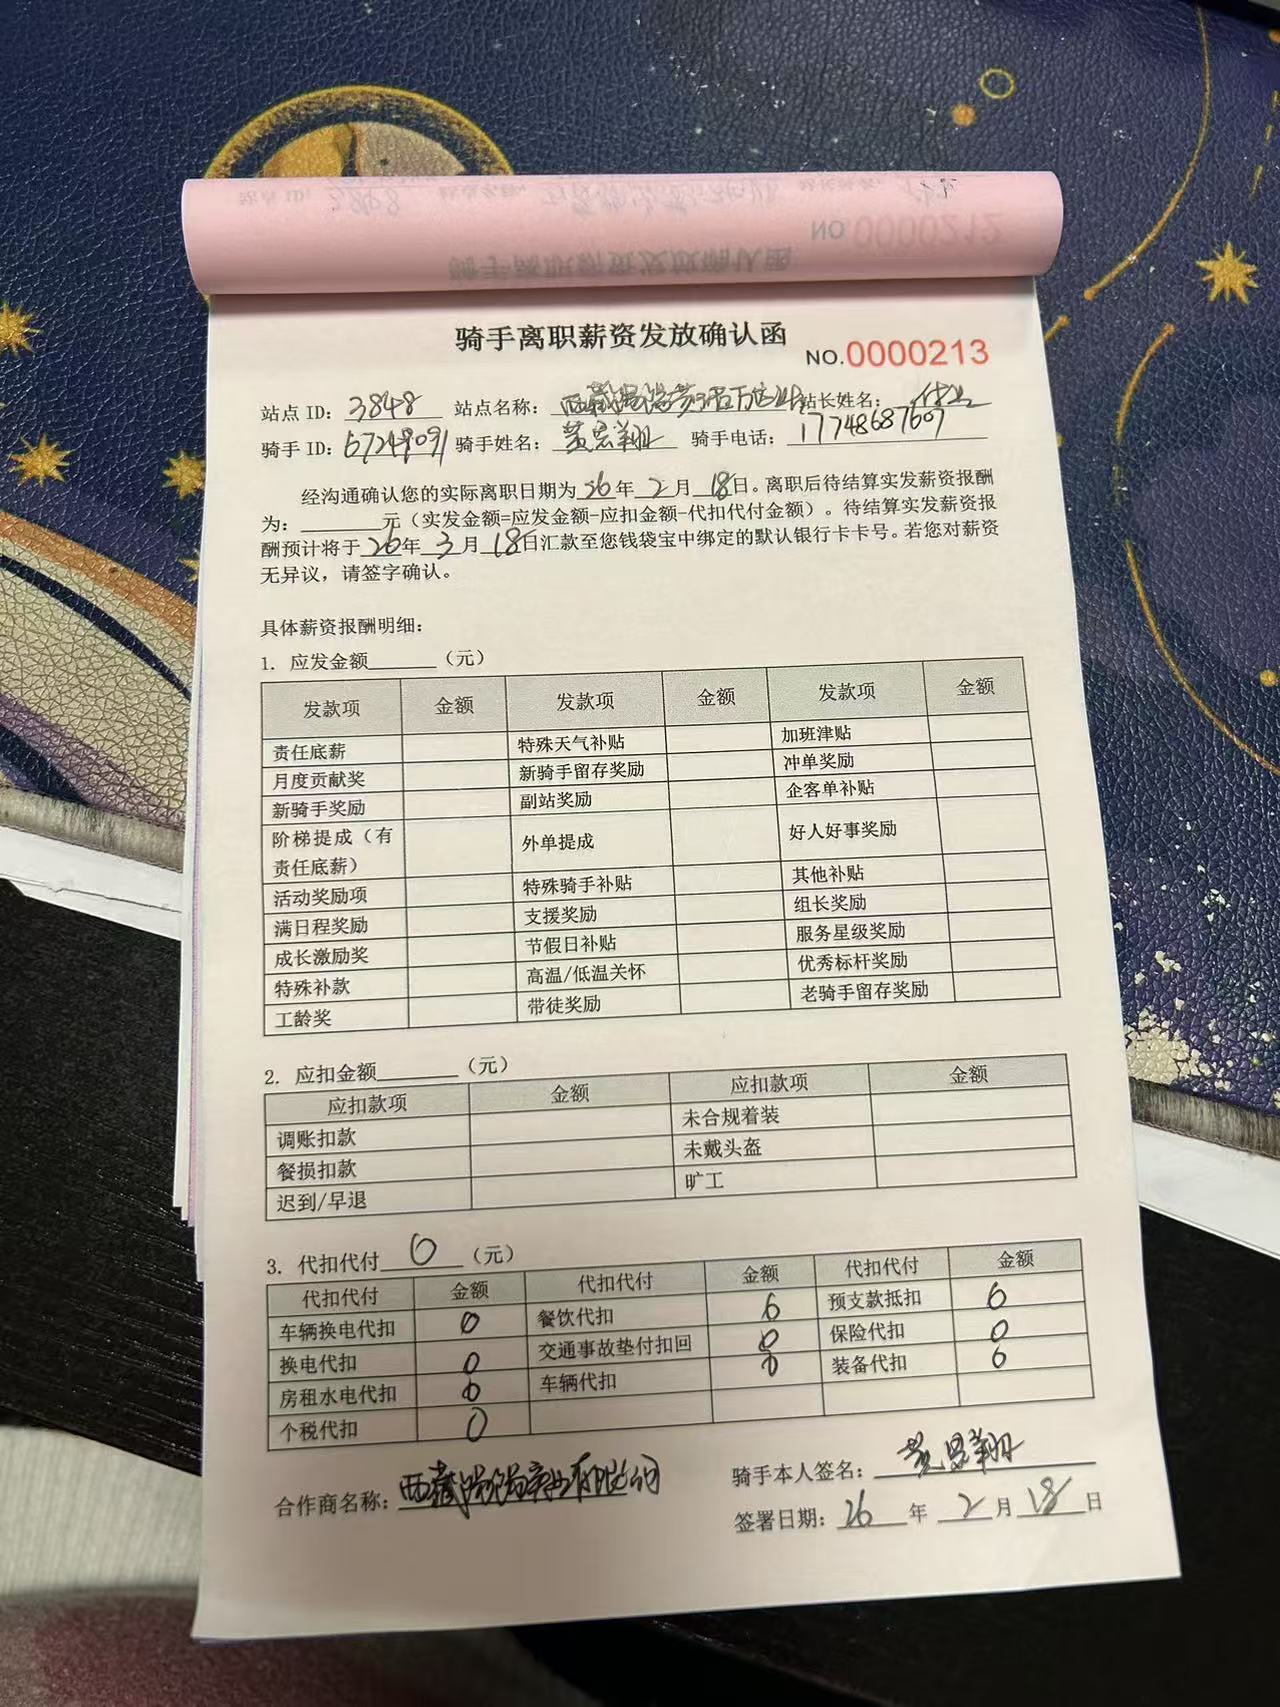 骑手离职薪资发放确认函
NO.0000213
站点 ID: 3848 站点名称: 西藏 站长姓名:
骑手 ID: 67248091 骑手姓名: 黄思翔 骑手电话: 17748687607
经沟通确认您的实际离职日期为26年2月18日。离职后待结算实发薪资报酬
为:______元(实发金额=应发金额-应扣金额-代扣代付金额)。待结算实发薪资报
酬预计将于26年3月18日汇款至您钱袋宝中绑定的默认银行卡卡号。若您对薪资
无异议,请签字确认。
具体薪资报酬明细:
1. 应发金额______(元)
发款项 金额 发款项 金额 发款项 金额
责任底薪 特殊天气补贴 加班津贴
月度贡献奖 新骑手留存奖励 冲单奖励
新骑手奖励 副站奖励 企客单补贴
阶梯提成(有责任底薪) 外单提成 好人好事奖励
活动奖励项 特殊骑手补贴 其他补贴
满日程奖励 支援奖励 组长奖励
成长激励奖 节假日补贴 服务星级奖励
特殊补款 高温/低温关怀 优秀标杆奖励
工龄奖 带徒奖励 老骑手留存奖励
2. 应扣金额______(元)
应扣款项 金额 应扣款项 金额
调账扣款 未合规着装
餐损扣款 未戴头盔
迟到/早退 旷工
3. 代扣代付 0 (元)
代扣代付 金额 代扣代付 金额 代扣代付 金额
车辆换电代扣 0 餐饮代扣 0 预支款抵扣 0
换电代扣 0 交通事故垫付扣回 0 保险代扣 0
房租水电代扣 0 车辆代扣 0 装备代扣 0
个税代扣 0
合作商名称: 西藏 有限公司
骑手本人签名: 黄思翔
签署日期: 26 年 2 月 18 日